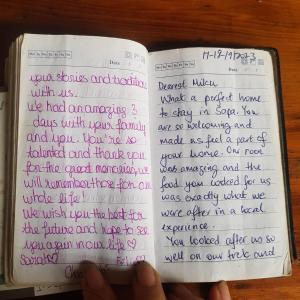 your stories and traditions
with us.
We had an amazing 3
days with your family
and you. You're so
talented and thank you
for the great memories, we
will remember those for our
whole life!
We wish you the best for
the future and hope to see
you again in our life ♡
Sarah ♡
Date
17-18/9/2023
Dearest Muku
What a perfect home
to stay in Sapa. You
are so welcoming and
made us feel a part of
your home. Our room
was amazing and the
food you cooked for us
was exactly what we
were after in a local
experience.
You looked after us so
well on our trek and